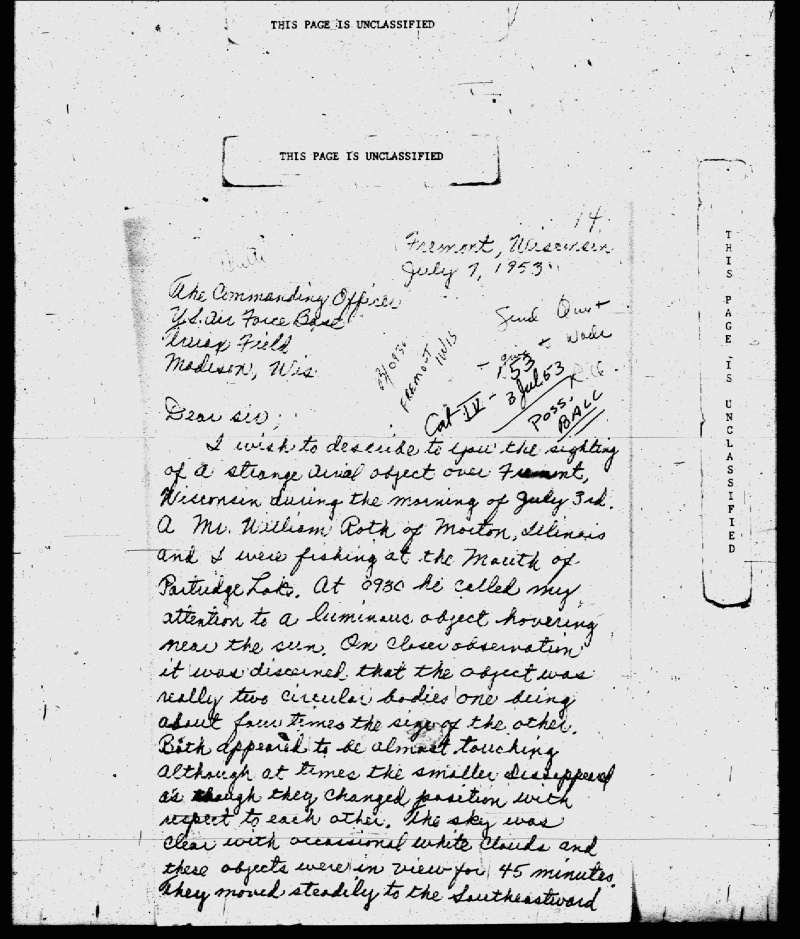 THIS PAGE IS UNCLASSIFIED
THIS PAGE IS UNCLASSIFIED
14
Fremont, Wisconsin
July 7, 1953
The Commanding Officer
U.S. Air Force Base
Truax Field
Madison, Wis.
Send
Wade
0930
FREMONT WIS
Cat IV - 53
3 Jul 53
POSS.
BALL
THIS PAGE IS UNCLASSIFIED
Dear sir;
I wish to describe to you the sighting
of a strange aerial object over Fremont,
Wisconsin during the morning of July 3rd.
A Mr. William Roth of Morton, Illinois
and I were fishing at the Mouth of
Partridge Lake. At 0930 he called my
attention to a luminous object hovering
near the sun. On closer observation
it was discerned that the object was
really two circular bodies one being
about four times the size of the other.
Both appeared to be almost touching
although at times the smaller
as though they changed position with
respect to each other. The sky was
clear with occasional white clouds and
these objects were in view for 45 minutes.
They moved steadily to the Southeastward